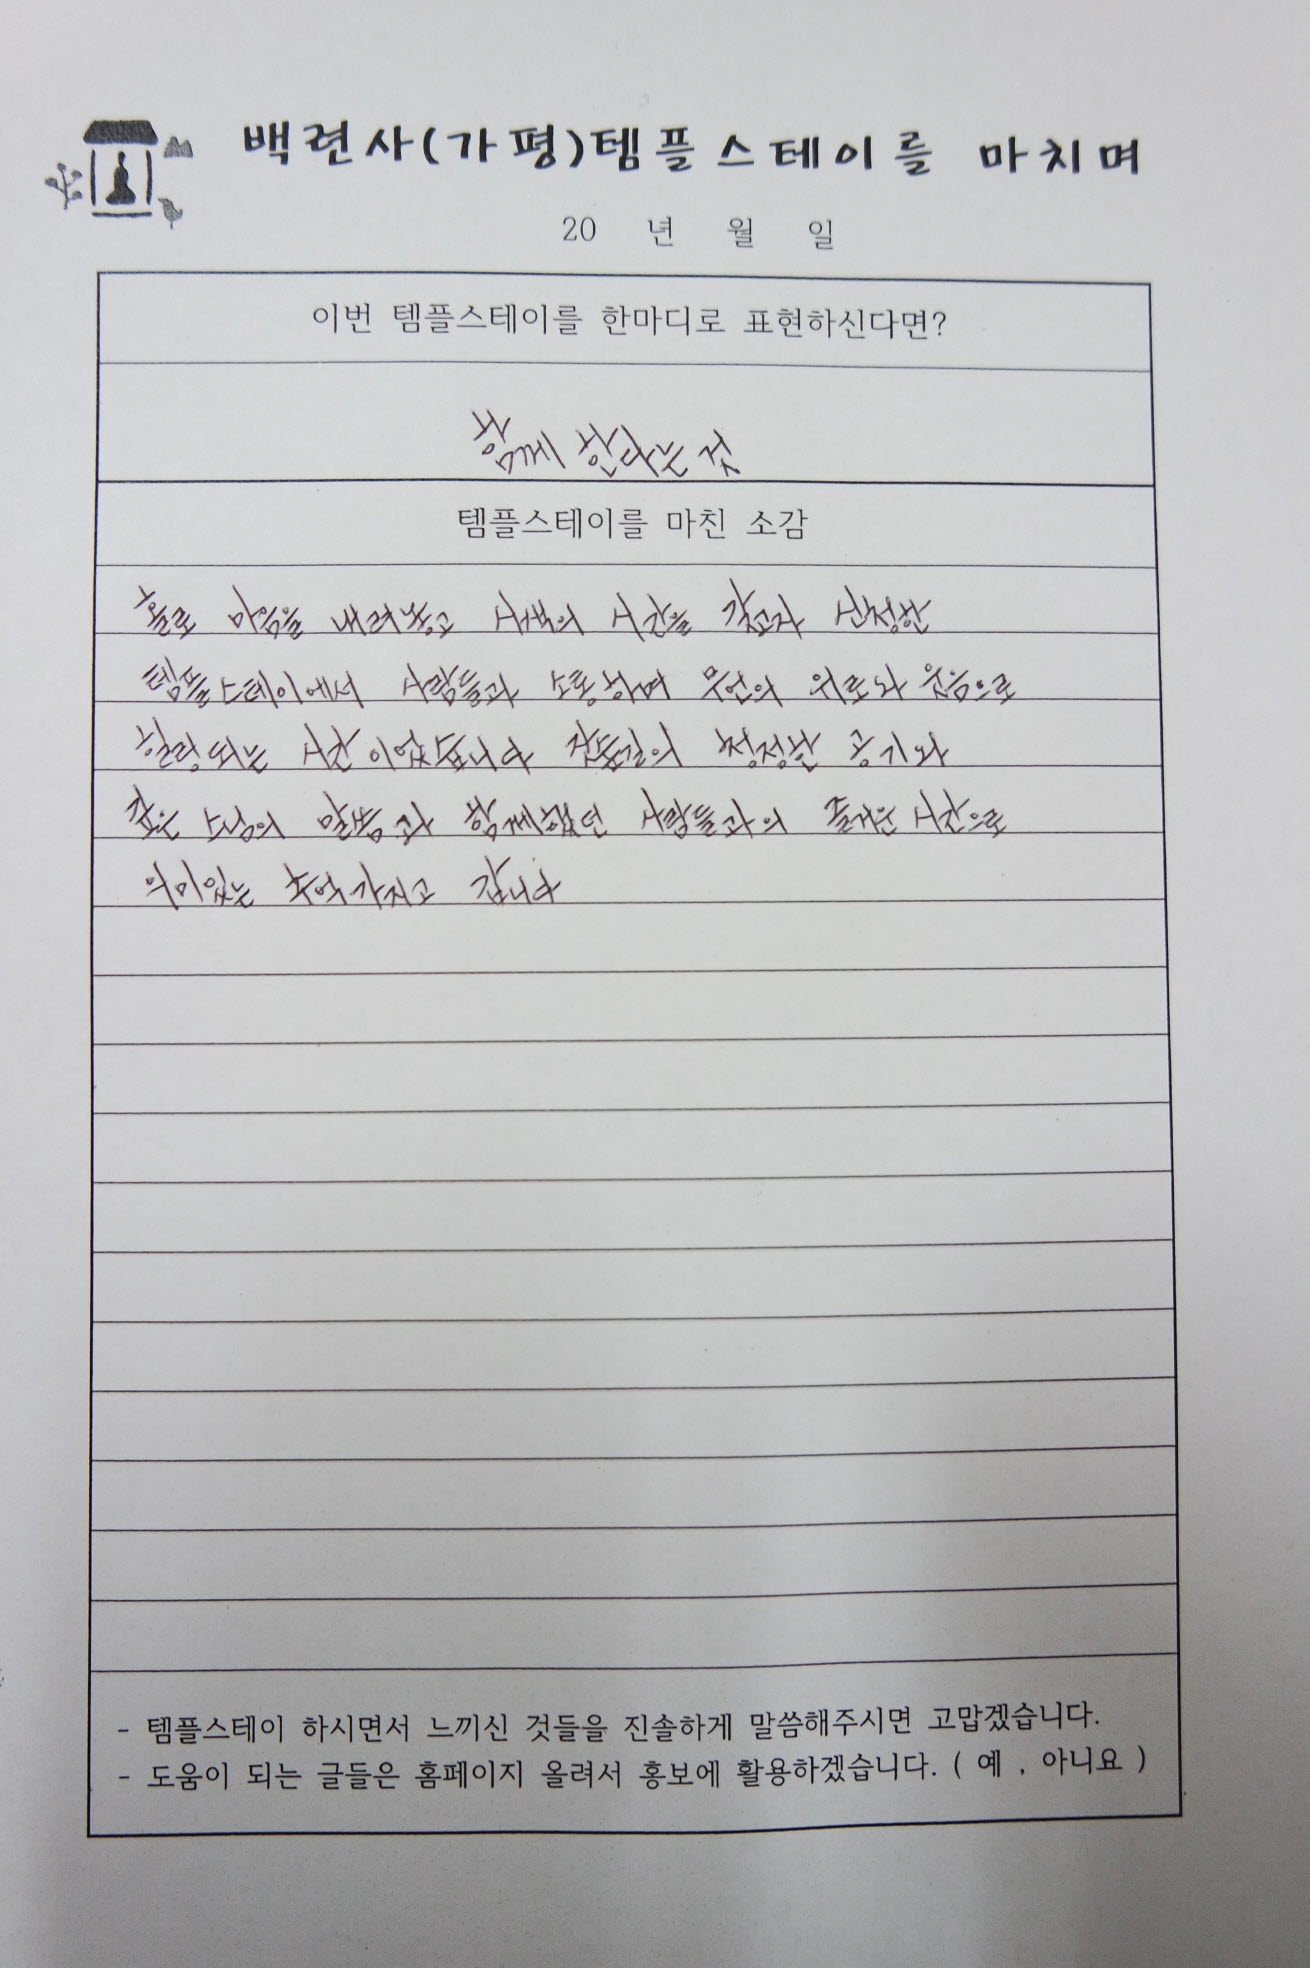 백련사(가평)템플스테이를 마치며
20 년 월 일
이번 템플스테이를 한마디로 표현하신다면?
함께 한다는 것
템플스테이를 마친 소감
홀로 마음을 내려놓고 사색의 시간을 갖고자 신청한
템플스테이에서 사람들과 소통하며 무언의 위로와 웃음으로
힐링되는 시간이었습니다 잣숲길의 청정한 공기와
깊은 스님의 말씀과 함께했던 사람들과의 즐거운 시간으로
의미있는 추억 가지고 갑니다
- 템플스테이 하시면서 느끼신 것들을 진솔하게 말씀해주시면 고맙겠습니다.
- 도움이 되는 글들은 홈페이지 올려서 홍보에 활용하겠습니다. ( 예 , 아니요 )